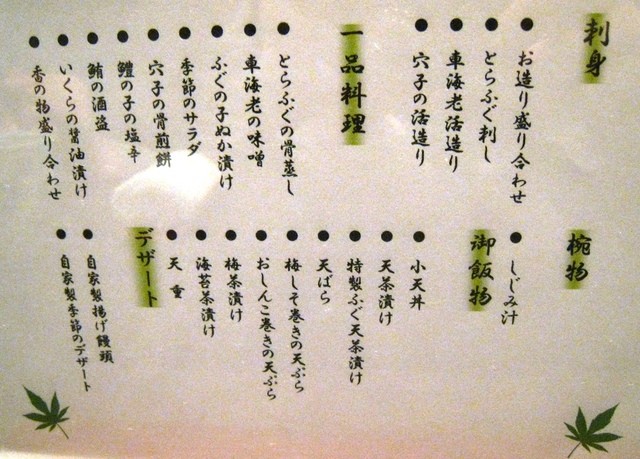 刺身
● お造り盛り合わせ
● とらふぐ刺し
● 車海老活造り
● 穴子の活造り
一品料理
● とらふぐの骨蒸し
● 車海老の味噌
● ふぐの子ぬか漬け
● 季節のサラダ
● 穴子の骨煎餅
● 鱧の子の塩辛
● 鮪の酒盗
● いくらの醤油漬け
● 香の物盛り合わせ
椀物
● しじみ汁
御飯物
● 小天丼
● 天茶漬け
● 特製ふぐ天茶漬け
● 天ばら
● 梅しそ巻きの天ぷら
● おしんこ巻きの天ぷら
● 梅茶漬け
● 海苔茶漬け
● 天重
デザート
● 自家製揚げ饅頭
● 自家製季節のデザート